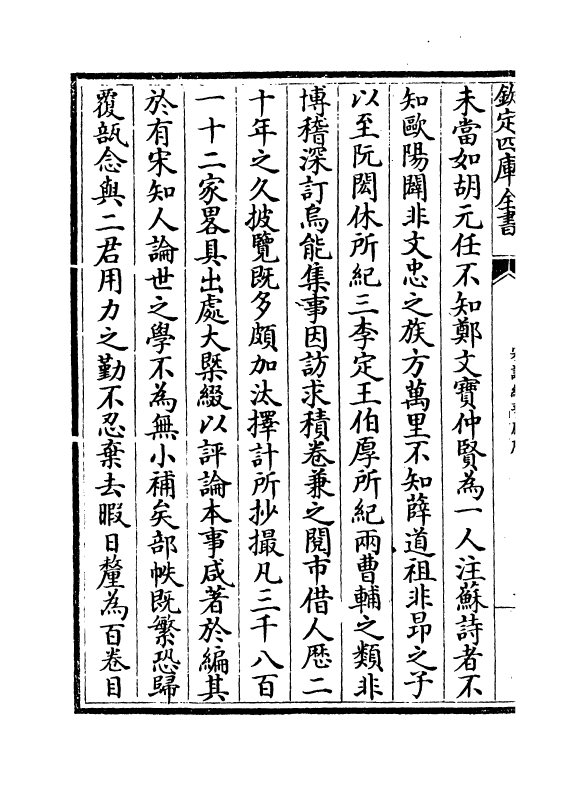 欽定四庫全書
未當如胡元任不知鄭文寳仲賢為一人注蘇詩者不
知歐陽闢非文忠之族方萬里不知薛道祖非昂之子
以至阮閎休所紀三李定王伯厚所紀兩曹輔之類非
博稽深訂烏能集事因訪求積卷兼之閱市借人厯二
十年之久披覽既多頗加汰擇計所抄撮凡三千八百
一十二家畧具出處大槩綴以評論本事咸著於編其
於有宋知人論世之學不為無小補矣部帙既繁恐歸
覆瓿念與二君用力之勤不忍棄去暇日釐為百卷目